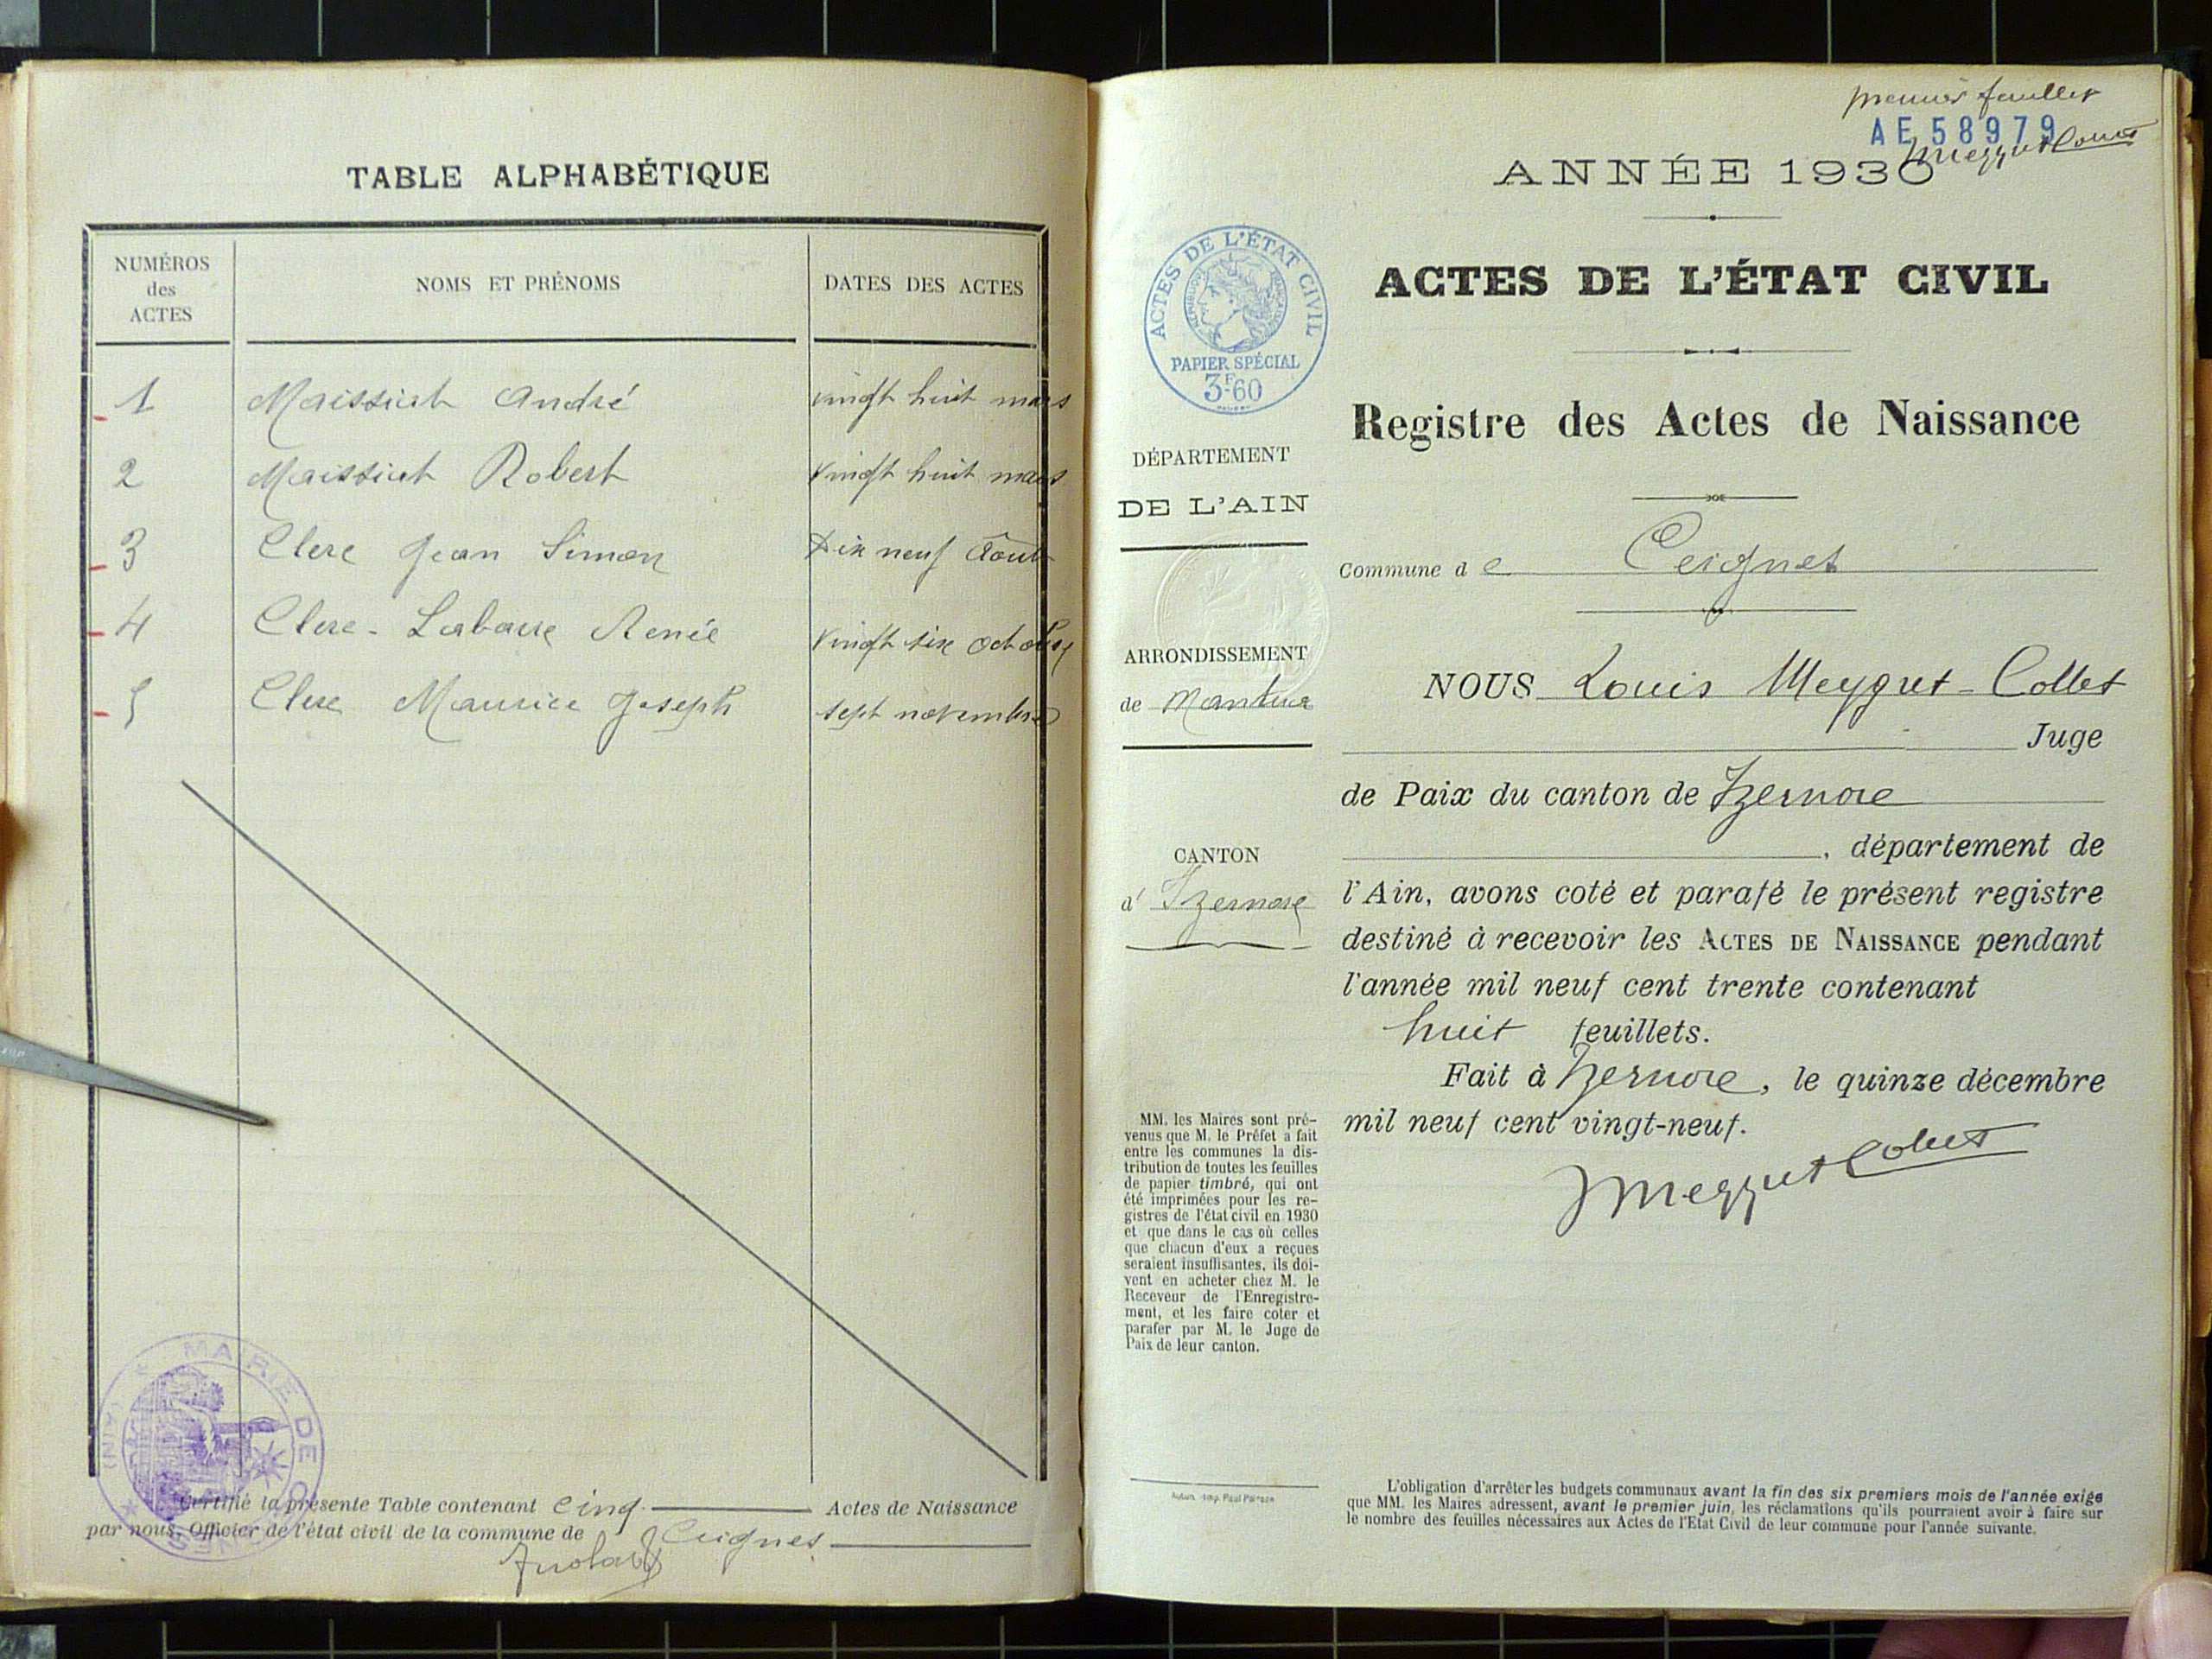 TABLE ALPHABÉTIQUE
NUMÉROS
des
ACTES
NOMS ET PRÉNOMS
DATES DES ACTES
1 Maissiat André vingt huit mars
2 Maissiat Robert vingt huit mars
3 Clerc Jean Simon Dix neuf Août
4 Clerc-Labarre Renée vingt six octobre
5 Clerc Maurice Joseph sept novembre
Certifié la présente Table contenant Cinq Actes de Naissance
par nous, Officier de l'état civil de la commune de Ceignes
MAIRIE DE
(AIN)
premier feuillet
AE 58979
Meygret Collet
ANNÉE 1930
ACTES DE L'ÉTAT CIVIL
ACTES DE L'ÉTAT CIVIL
PAPIER SPÉCIAL
3F60
Registre des Actes de Naissance
DÉPARTEMENT
DE L'AIN
Commune de Ceignes
ARRONDISSEMENT
de Mantua
CANTON
d'Izernore
NOUS Louis Meygret-Collet
Juge
de Paix du canton de Izernore
, département de
l'Ain, avons coté et parafé le présent registre
destiné à recevoir les ACTES DE NAISSANCE pendant
l'année mil neuf cent trente contenant
huit feuillets.
Fait à Izernore, le quinze décembre
mil neuf cent vingt-neuf.
Meygret Collet
MM. les Maires sont pré-
venus que M. le Préfet a fait
entre les communes la dis-
tribution de toutes les feuilles
de papier timbré, qui ont
été imprimées pour les re-
gistres de l'état civil en 1930
et que dans le cas où celles
que chacun d'eux a reçues
seraient insuffisantes, ils doi-
vent en acheter chez M. le
Receveur de l'Enregistre-
ment, et les faire coter et
parafer par M. le Juge de
Paix de leur canton.
L'obligation d'arrêter les budgets communaux avant la fin des six premiers mois de l'année exige
que MM. les Maires adressent, avant le premier juin, les réclamations qu'ils pourraient avoir à faire sur
le nombre des feuilles nécessaires aux Actes de l'Etat Civil de leur commune pour l'année suivante.